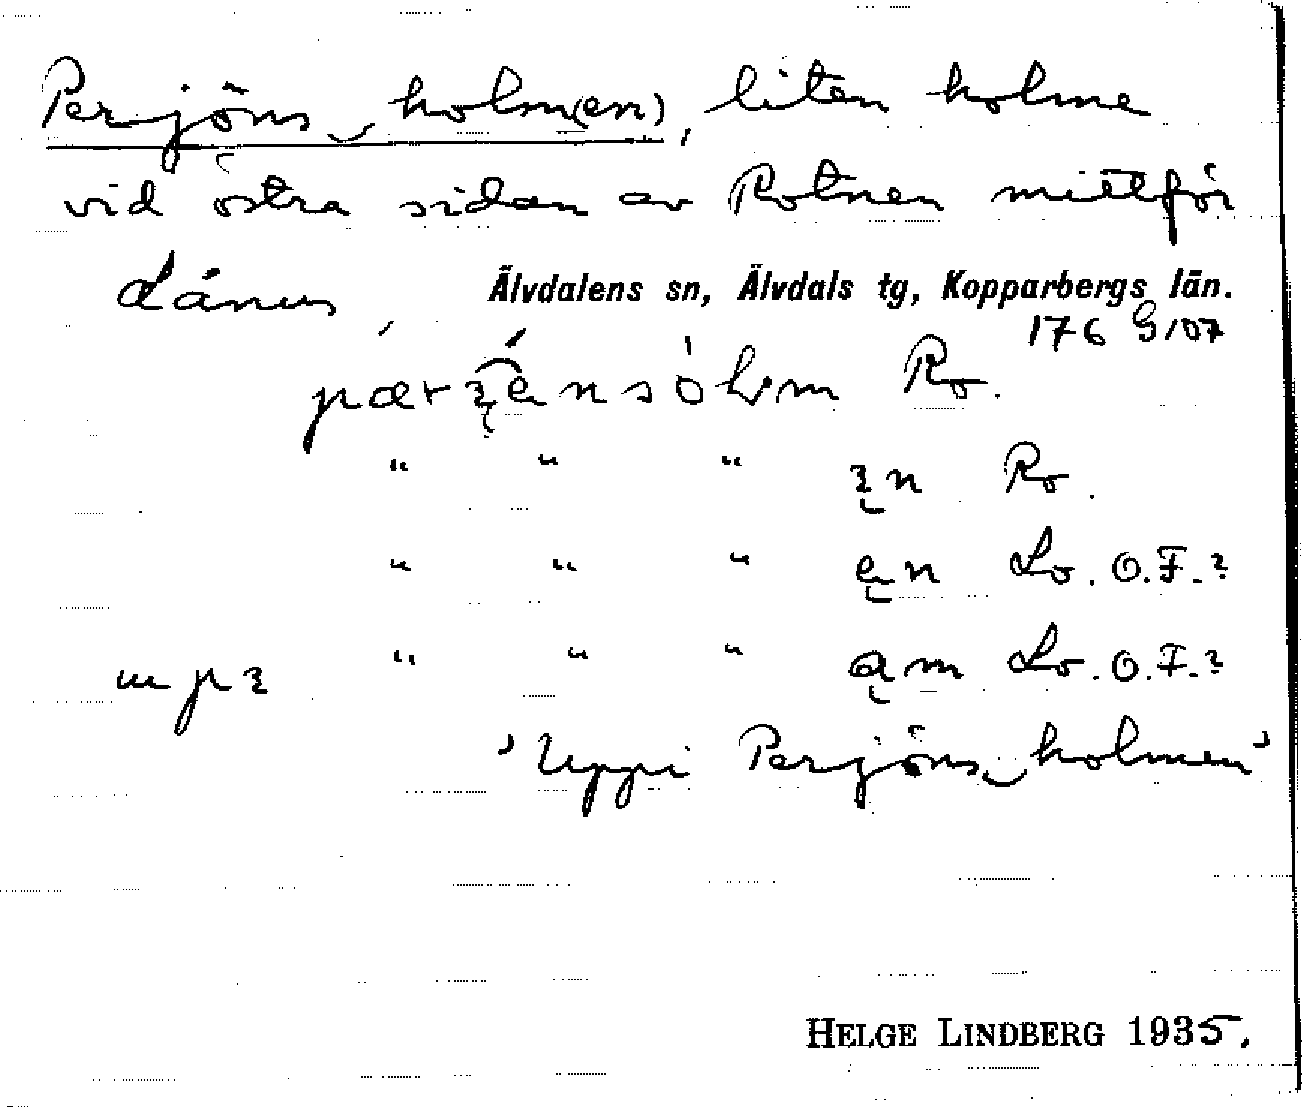 Perjöns‿holm(en), liten holme
vid östra sidan av Rotnen mittför
Lánus
Älvdalens sn, Älvdals tg, Kopparbergs län.
176 G/07
Ro.
" " " n Ro.
" " " en Lo. O.F.?
" " " am Lo. O.F.?
'Uppi Perjöns‿holmen'
HELGE LINDBERG 1935.